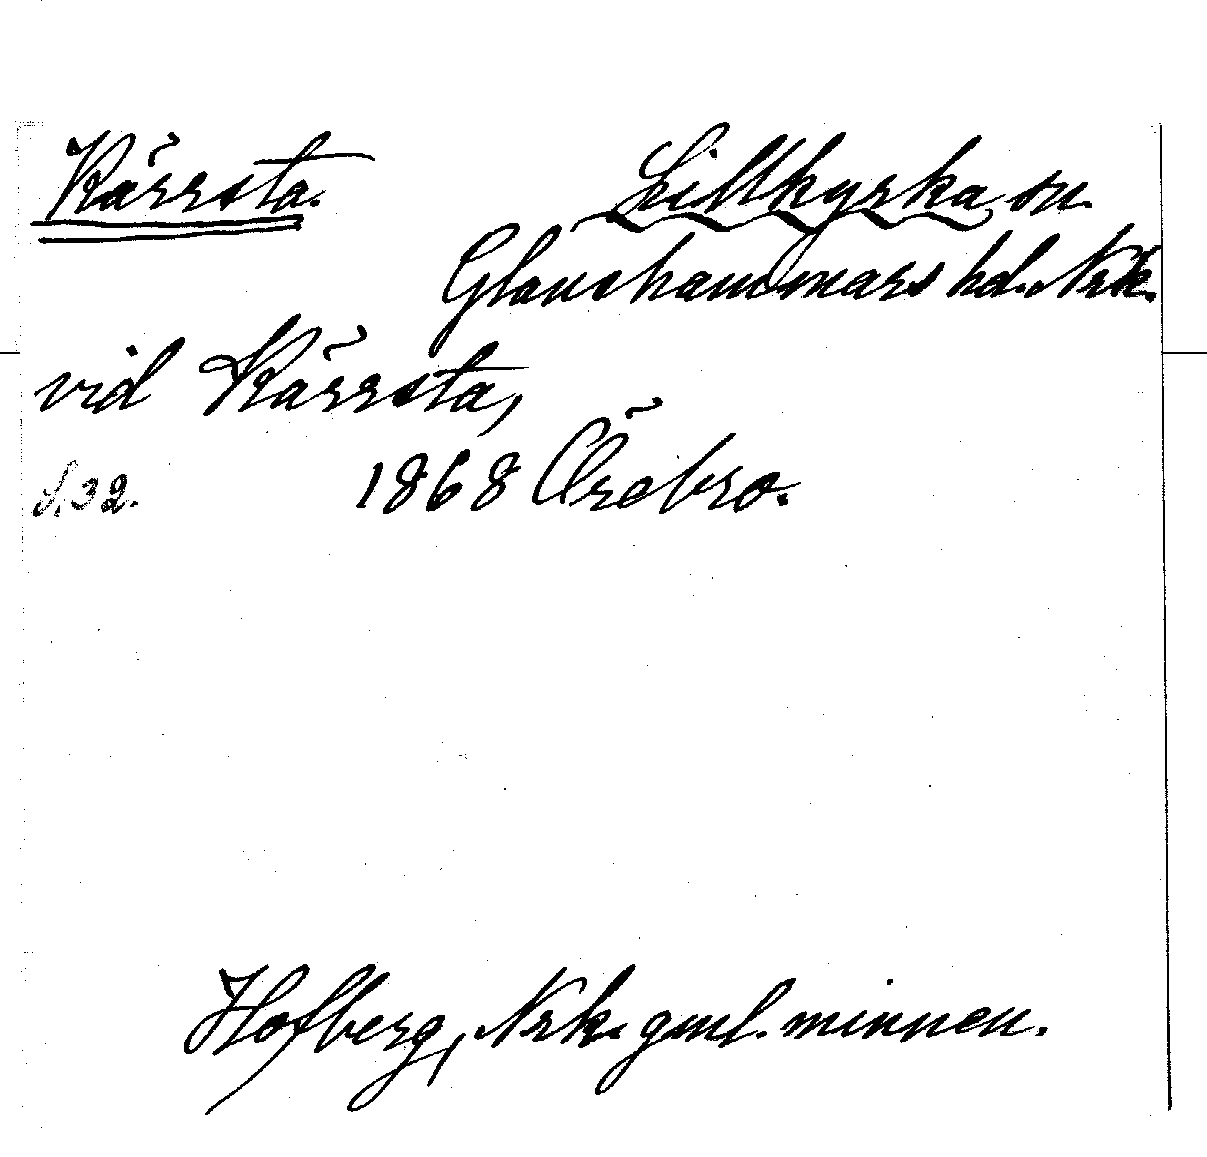 Kärrsta. Lillkyrka sn.
Glanshammars hd. Nrk.
vid Kärrsta,
S. 32. 1868 Örebro.
Hofberg, Nrk. gml. minnen.